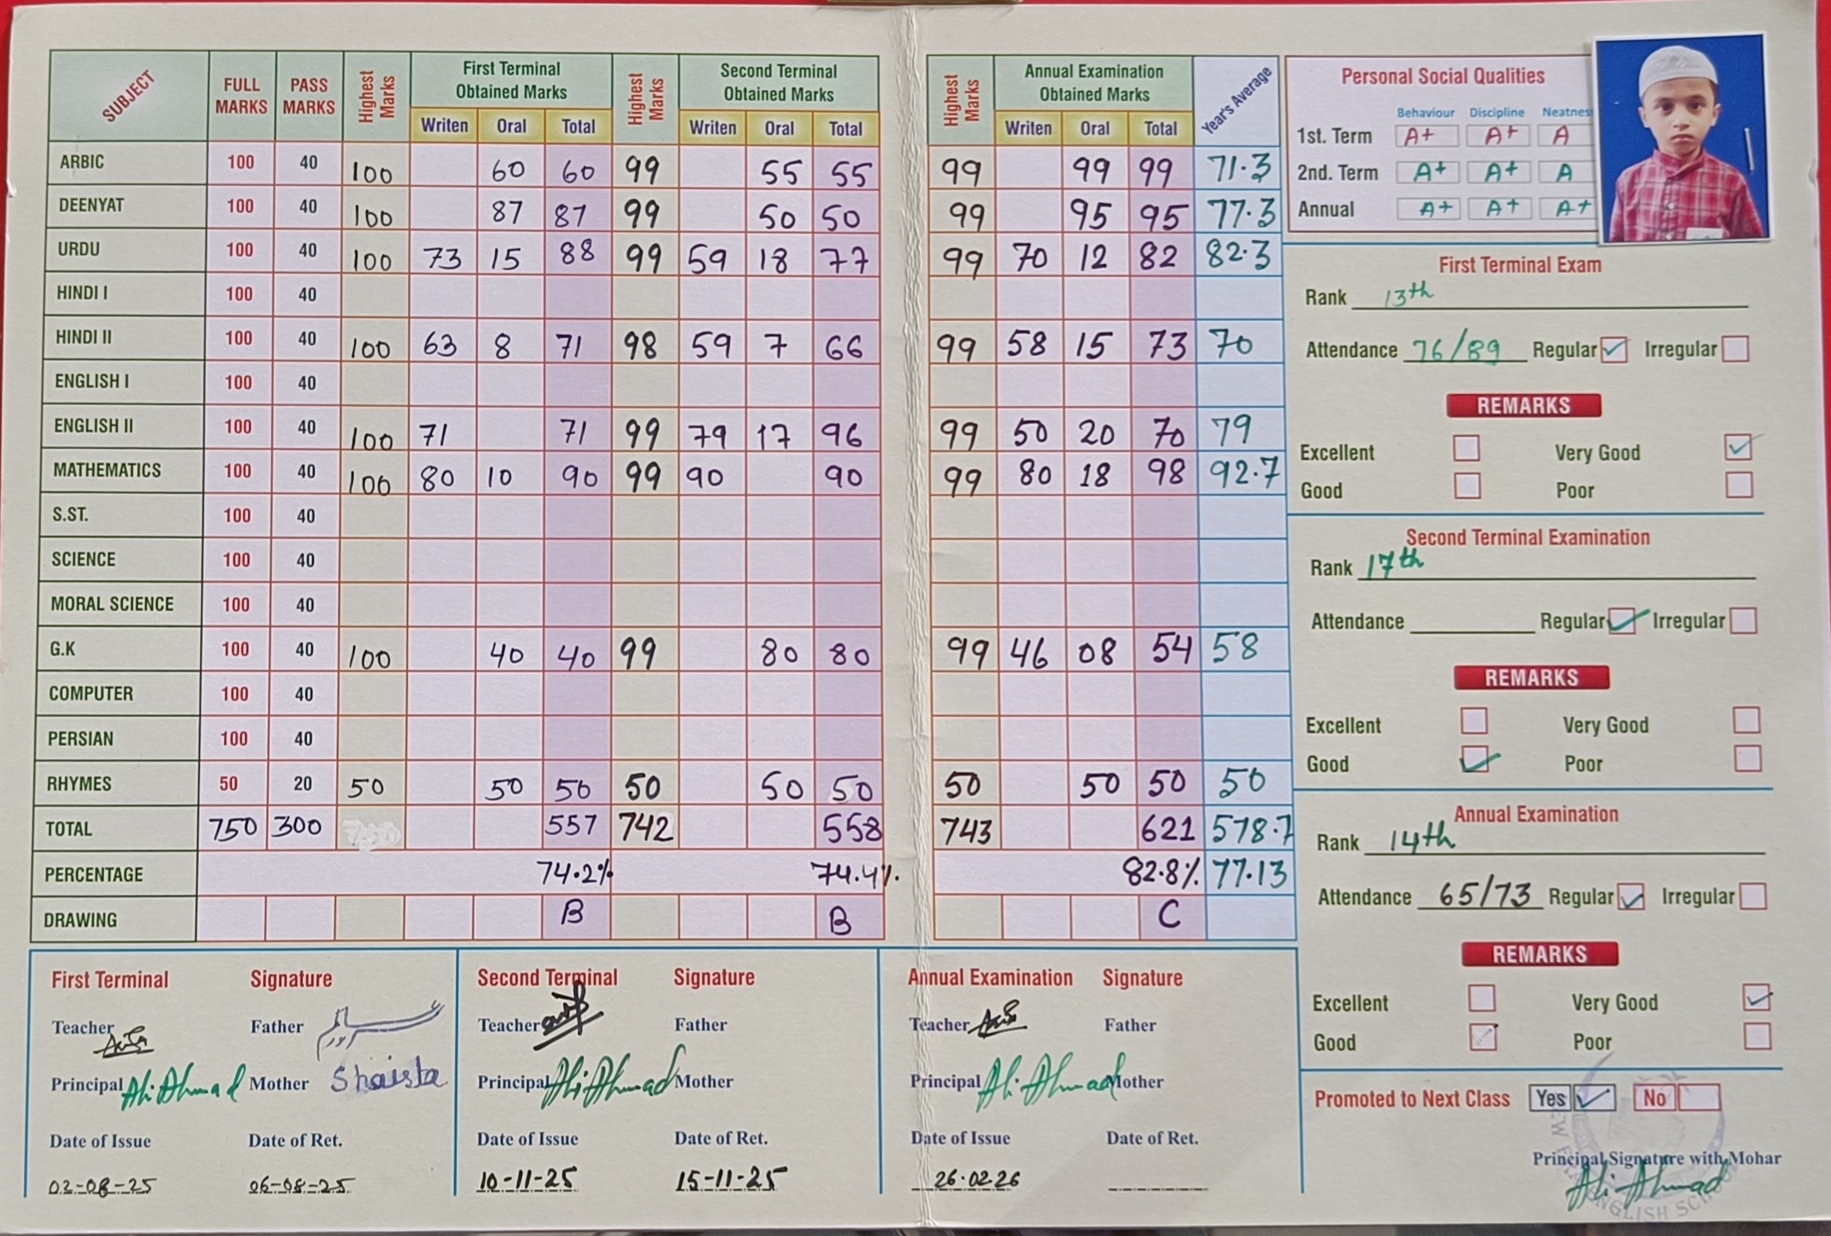 SUBJECT FULL MARKS PASS MARKS Highest Marks First Terminal Obtained Marks Highest Marks Second Terminal Obtained Marks Highest Marks Annual Examination Obtained Marks Year's Average
Writen Oral Total Writen Oral Total Writen Oral Total
ARBIC 100 40 100 60 60 99 55 55 99 99 99 71.3
DEENYAT 100 40 100 87 87 99 50 50 99 95 95 77.3
URDU 100 40 100 73 15 88 99 59 18 77 99 70 12 82 82.3
HINDI I 100 40
HINDI II 100 40 100 63 8 71 98 59 7 66 99 58 15 73 70
ENGLISH I 100 40
ENGLISH II 100 40 100 71 71 99 79 17 96 99 50 20 70 79
MATHEMATICS 100 40 100 80 10 90 99 90 90 99 80 18 98 92.7
S.ST. 100 40
SCIENCE 100 40
MORAL SCIENCE 100 40
G.K 100 40 100 40 40 99 80 80 99 46 08 54 58
COMPUTER 100 40
PERSIAN 100 40
RHYMES 50 20 50 50 50 50 50 50 50 50 50 50
TOTAL 750 300 557 742 558 743 621 578.7
PERCENTAGE 74.2% 74.4%. 82.8% 77.13
DRAWING B B C
Personal Social Qualities
Behaviour Discipline Neatnes
1st. Term A+ A+ A
2nd. Term A+ A+ A
Annual A+ A+ A+
First Terminal Exam
Rank 13th
Attendance 76/89 Regular Irregular
REMARKS
Excellent Very Good
Good Poor
Second Terminal Examination
Rank 17th
Attendance Regular Irregular
REMARKS
Excellent Very Good
Good Poor
Annual Examination
Rank 14th
Attendance 65/73 Regular Irregular
REMARKS
Excellent Very Good
Good Poor
Promoted to Next Class Yes No
Principal Signature with Mohar
Ali Ahmad
ENGLISH SCHOOL
First Terminal Signature
Teacher Father
Principal Ali Ahmad Mother Shaista
Date of Issue Date of Ret.
02-08-25 06-08-25
Second Terminal Signature
Teacher Father
Principal Ali Ahmad Mother
Date of Issue Date of Ret.
10-11-25 15-11-25
Annual Examination Signature
Teacher Father
Principal Ali Ahmad Mother
Date of Issue Date of Ret.
26.02.26